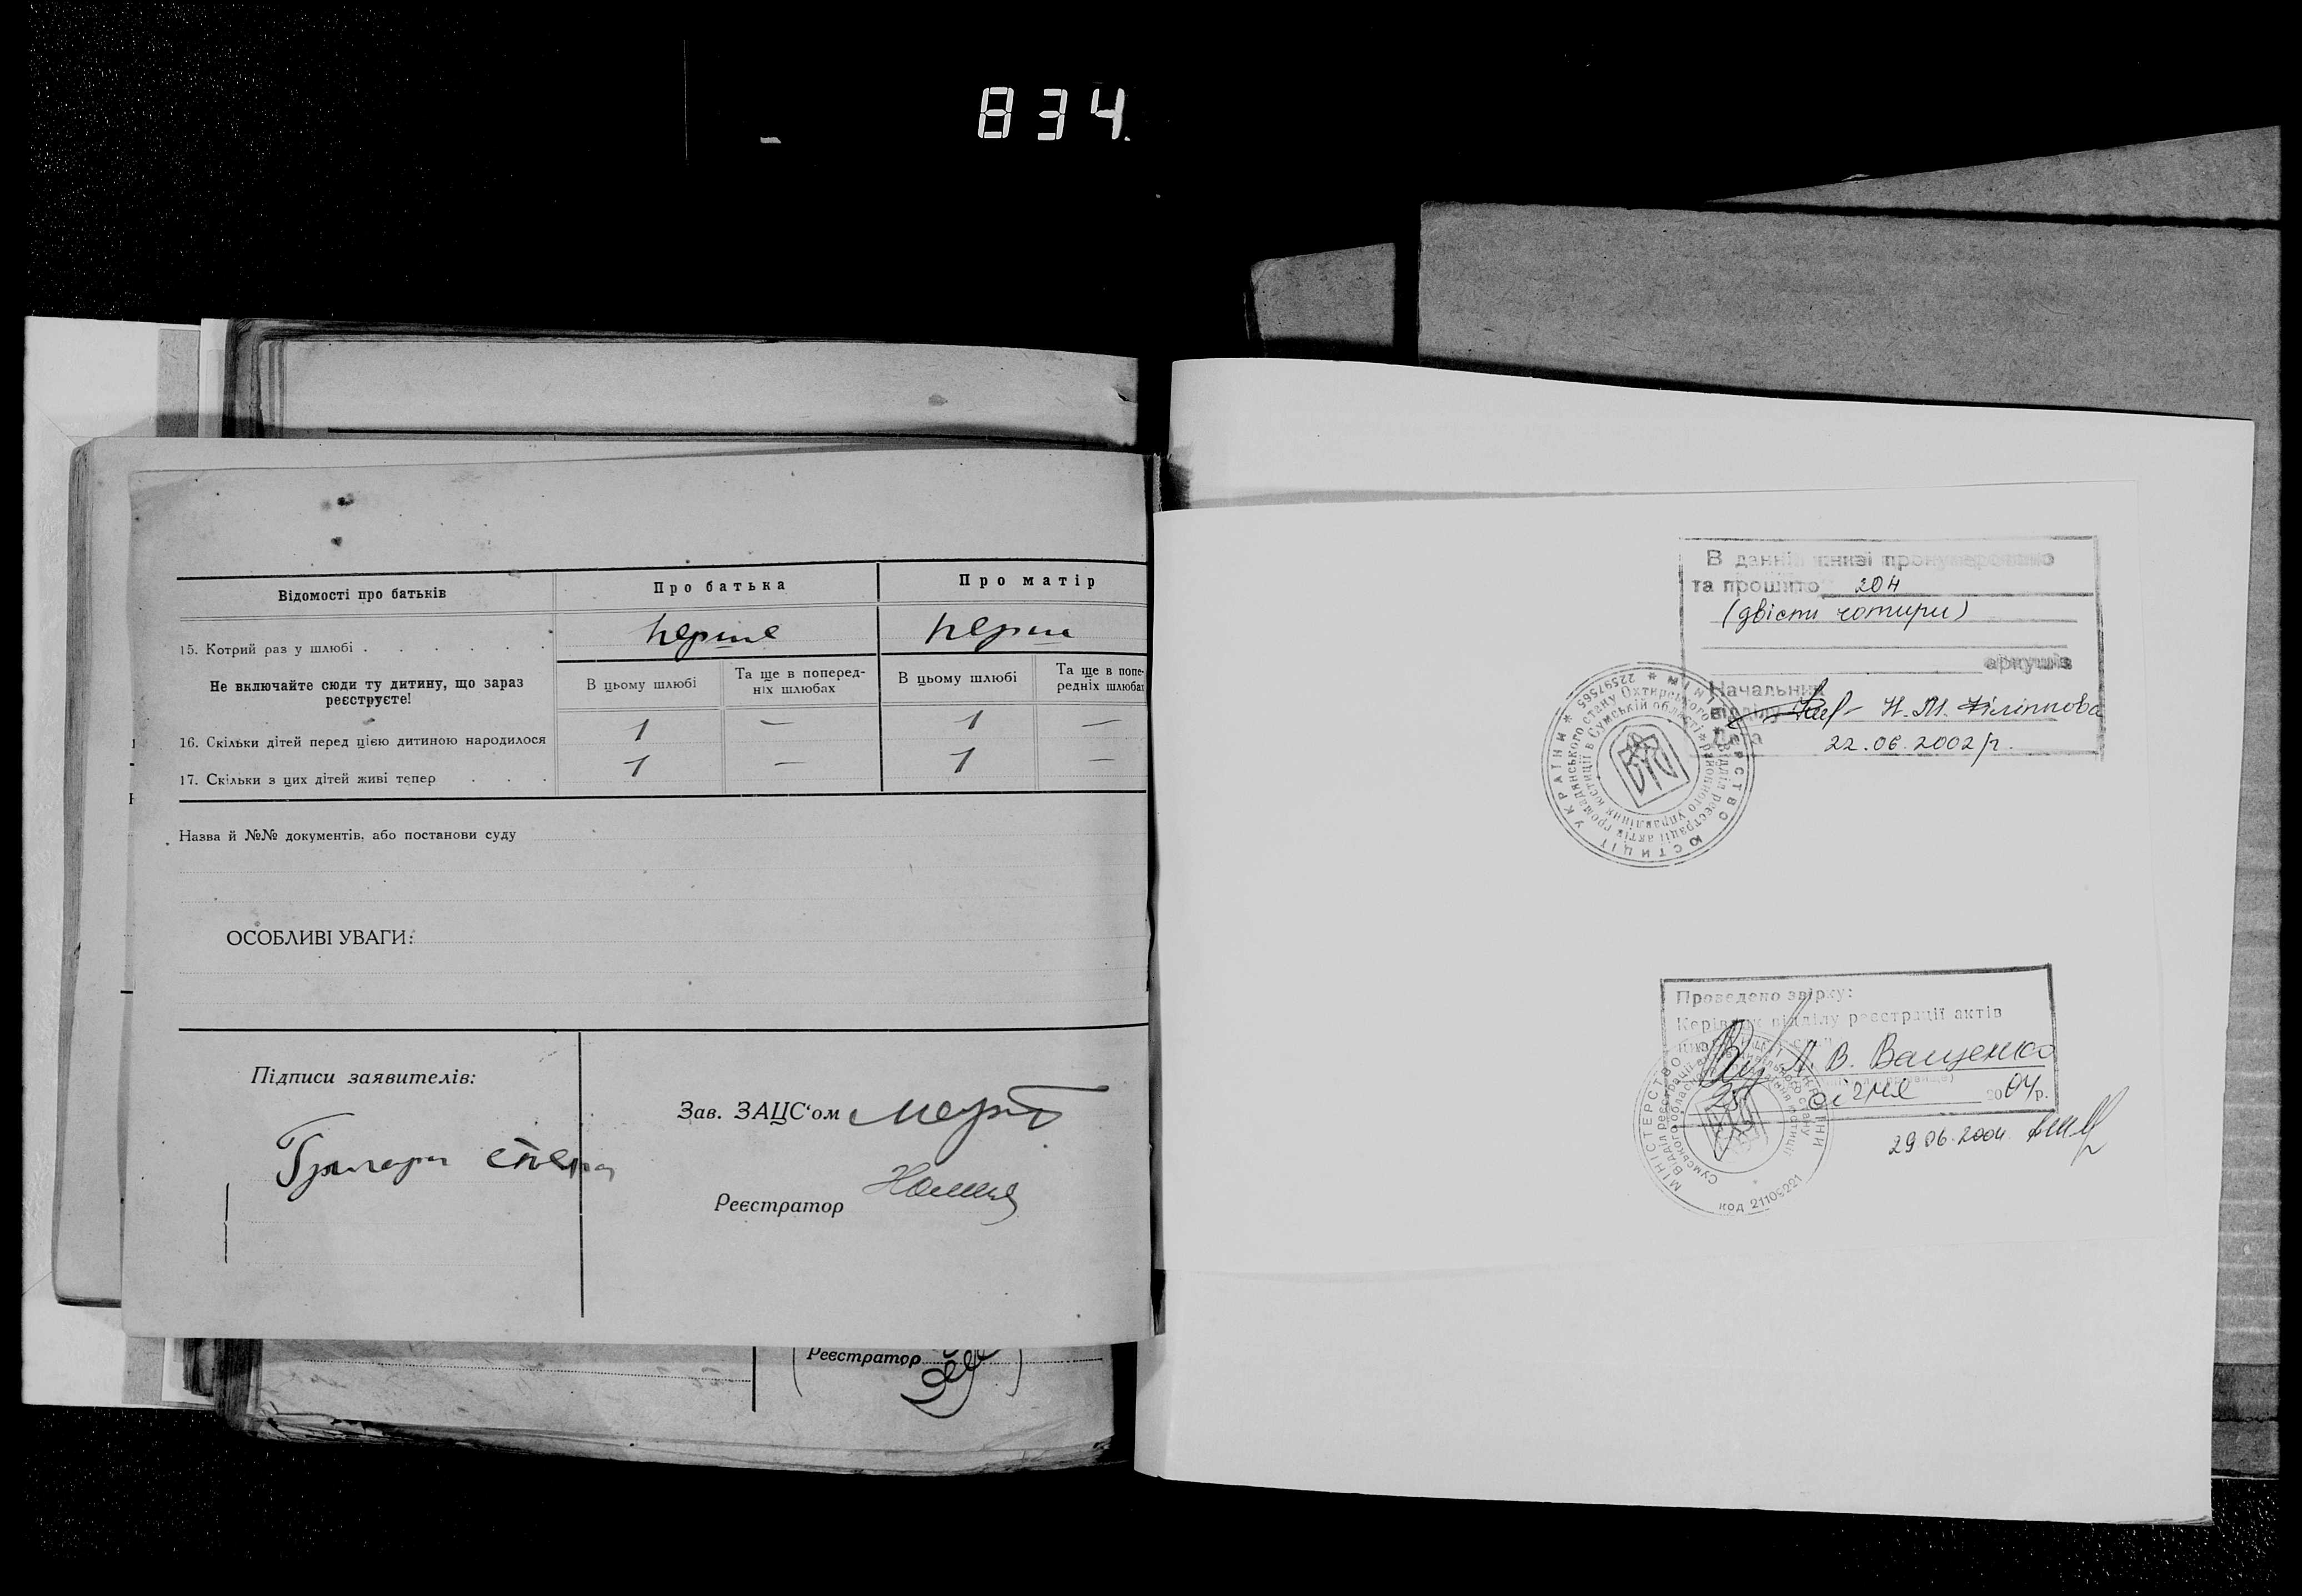 834.
Відомості про батьків
Про батька
Про матір
15. Котрий раз у шлюбі . . . . . .
перше
перше
Не включайте сюди ту дитину, що зараз
реєструєте!
В цьому шлюбі
Та ще в поперед-
ніх шлюбах
В цьому шлюбі
Та ще в попе-
редніх шлюбах
16. Скільки дітей перед цією дитиною народилося
1 — 1 —
17. Скільки з цих дітей живі тепер . . .
1 — 1 —
Назва й №№ документів, або постанови суду
ОСОБЛИВІ УВАГИ:
Підписи заявителів:
Зав. ЗАЦС'ом
Реєстратор
Реєстратор
В данній книзі пронумеровано
та прошито 204
(двісти чотири)
аркушів
Начальник
відділу Н. М. Філіппова
22.06.2002 р.
МІНІСТЕРСТВО ЮСТИЦІЇ УКРАЇНИ * 22597565 *
Відділ реєстрації актів громадянського стану Охтирського
районного управління юстиції в Сумській області *
Проведено звірку:
Керівник відділу реєстрації актів
Л. В. Ващенко
січня 2004 р.
29.06.2004.
МІНІСТЕРСТВО ЮСТИЦІЇ УКРАЇНИ
код 21109221